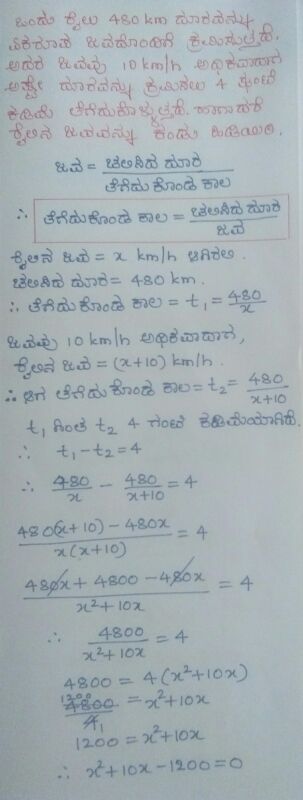 ಒಂದು ರೈಲು 480 km ದೂರವನ್ನು
ಏಕರೂಪ ಜವದೊಂದಿಗೆ ಕ್ರಮಿಸುತ್ತದೆ.
ಅದರ ಜವವು 10 km/h ಅಧಿಕವಾದಾಗ
ಅಷ್ಟೇ ದೂರವನ್ನು ಕ್ರಮಿಸಲು 4 ಗಂಟೆ
ಕಡಿಮೆ ತೆಗೆದುಕೊಳ್ಳುತ್ತದೆ. ಹಾಗಾದರೆ
ರೈಲಿನ ಜವವನ್ನು ಕಂಡು ಹಿಡಿಯಿರಿ.
ಜವ = ಚಲಿಸಿದ ದೂರ / ತೆಗೆದುಕೊಂಡ ಕಾಲ
∴ ತೆಗೆದುಕೊಂಡ ಕಾಲ = ಚಲಿಸಿದ ದೂರ / ಜವ
ರೈಲಿನ ಜವ = x km/h ಆಗಿರಲಿ.
ಚಲಿಸಿದ ದೂರ = 480 km.
∴ ತೆಗೆದುಕೊಂಡ ಕಾಲ = t₁ = 480/x
ಜವವು 10 km/h ಅಧಿಕವಾದಾಗ,
ರೈಲಿನ ಜವ = (x+10) km/h.
∴ ಆಗ ತೆಗೆದುಕೊಂಡ ಕಾಲ = t₂ = 480/(x+10)
t₁ ಗಿಂತ t₂ 4 ಗಂಟೆ ಕಡಿಮೆಯಾಗಿದೆ.
∴ t₁ - t₂ = 4
∴ 480/x - 480/(x+10) = 4
(480(x+10) - 480x) / x(x+10) = 4
(480x + 4800 - 480x) / (x²+10x) = 4
∴ 4800/(x²+10x) = 4
4800 = 4(x²+10x)
1200
4800/4 1 = x²+10x
1200 = x²+10x
∴ x²+10x-1200=0